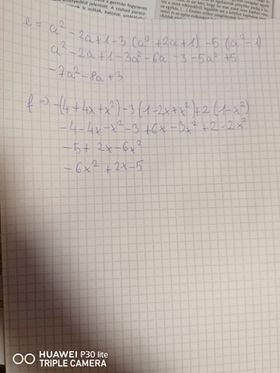 e = a² - 2a + 1 - 3 (a² + 2a + 1) - 5 (a² - 1)
a² - 2a + 1 - 3a² - 6a - 3 - 5a² + 5
-7a² - 8a + 3
f = -(4 + 4x + x²) - 3 (1 - 2x + x²) + 2 (1 - x²)
-4 - 4x - x² - 3 + 6x - 3x² + 2 - 2x²
-5 + 2x - 6x²
-6x² + 2x - 5
HUAWEI P30 lite
TRIPLE CAMERA